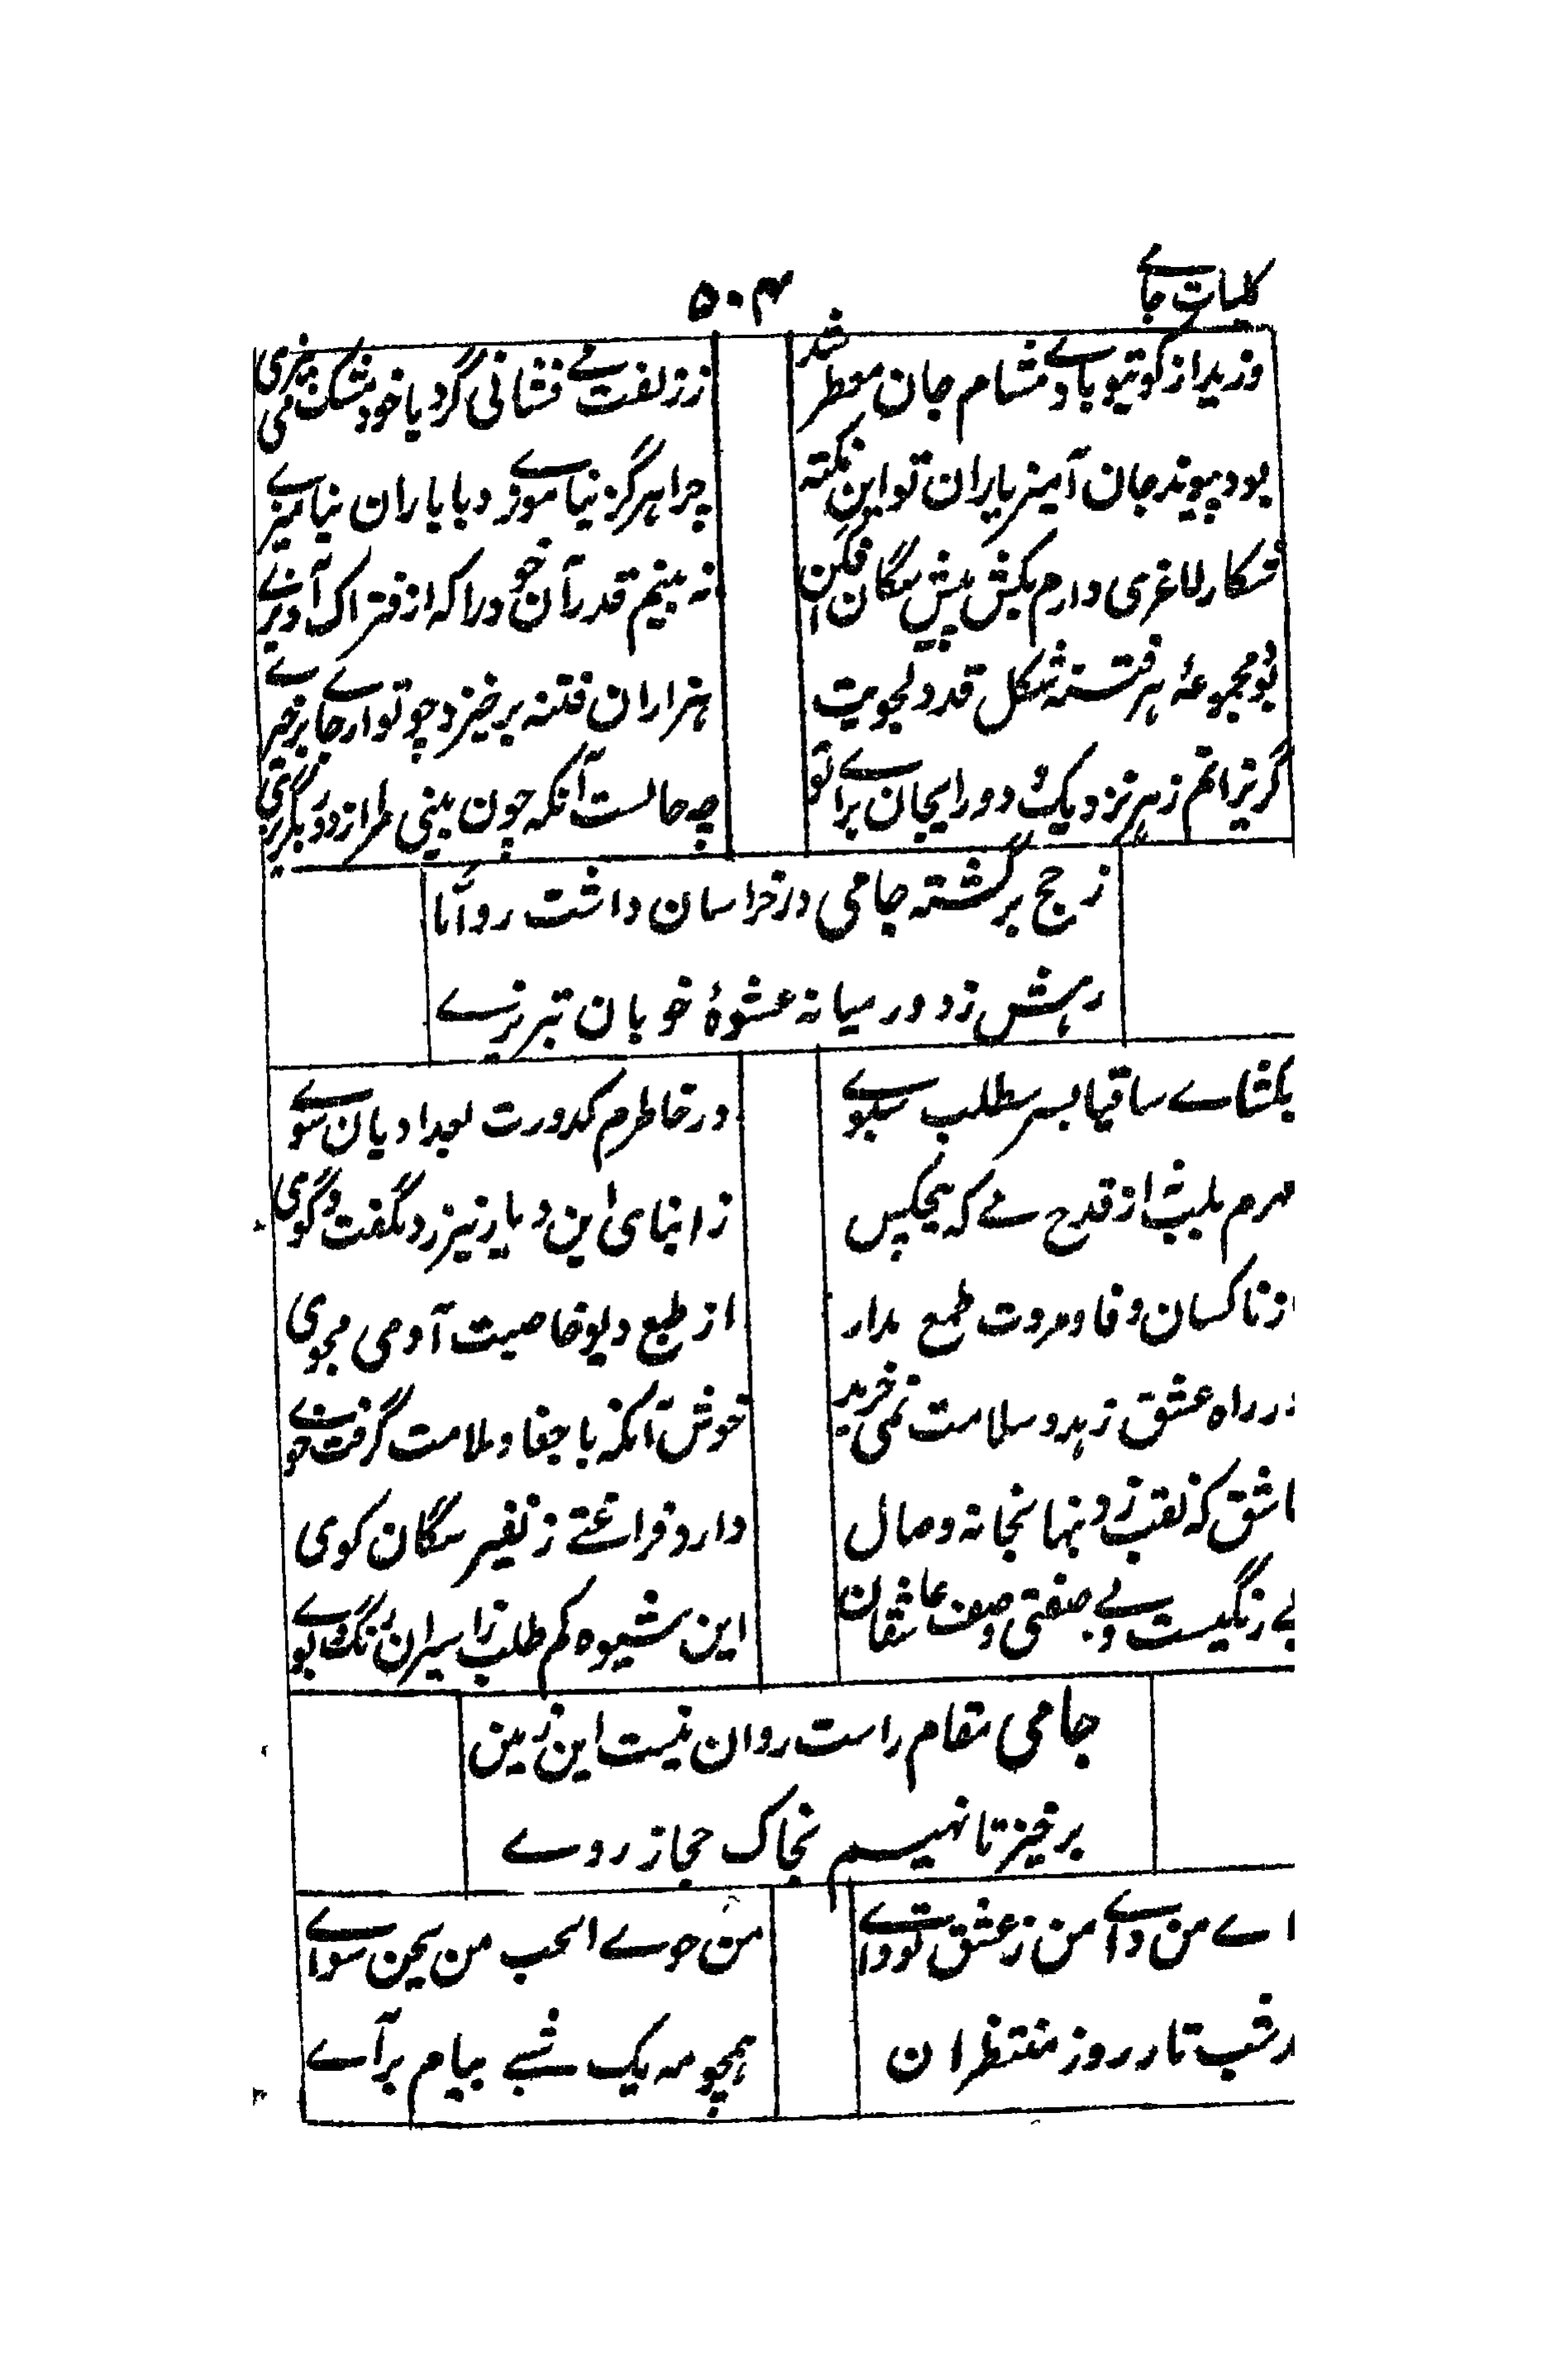 کلیات جامے
۵۰۴
وزید از کویتو بادے و مشام جان معطر شد
ز زلفت مے فشانی گرد یا خود مشک می بیزی
بود پیوند جان آمیز یاران تو این نکته
چرا هرگز نیاموزے و با یاران نیامیزے
شکار لاغری دارم بکش پیش سگان افکن
نه بینم قدر آن خود را که از فتراک آویزے
توئی مجموعهٔ هر فتنه شکل قد دلجویت
هزاران فتنه برخیزد چو تو از جاے برخیزے
گریزانم ز هر نزدیک و دور ایجان براے تو
چه حالست آنکه چون بینی مرا از دور بگریزی
ز حج برگشته جامی در خراسان داشت رو اما
رهش زد در میانه عشوهٔ خوبان تبریزے
بکشاے ساقیا بسر سطلب سبوے
در خاطرم کدورت بغدادیان شوے
مهرم بلب نه از قدح مے که هیچکس
ز ابنای این دیار نیرزد بگفت و گوی
از ناکسان وفا و مروت طمع مدار
از طبع دیو خاصیت آدمی مجوی
در راه عشق زهد و سلامت نمی خرند
خوش آنکه با جفا و ملامت گرفت خوے
عاشق که نقب زد بنهانخانه وصال
دارد فراغتے ز نفیر سگان کوی
بے رنگیست و بے صفتی وصف عاشقان
این شیوه کم طلب ز اسیران رنگ و بوے
جامی مقام راست روان نیست این زمین
برخیز تا نهیم بخاک حجاز روے
اے من واے من ز عشق تو واے
من حوے الحب من یحن سواے
شب تا روز منتظران
همچو مه یک شبے ببام برآے